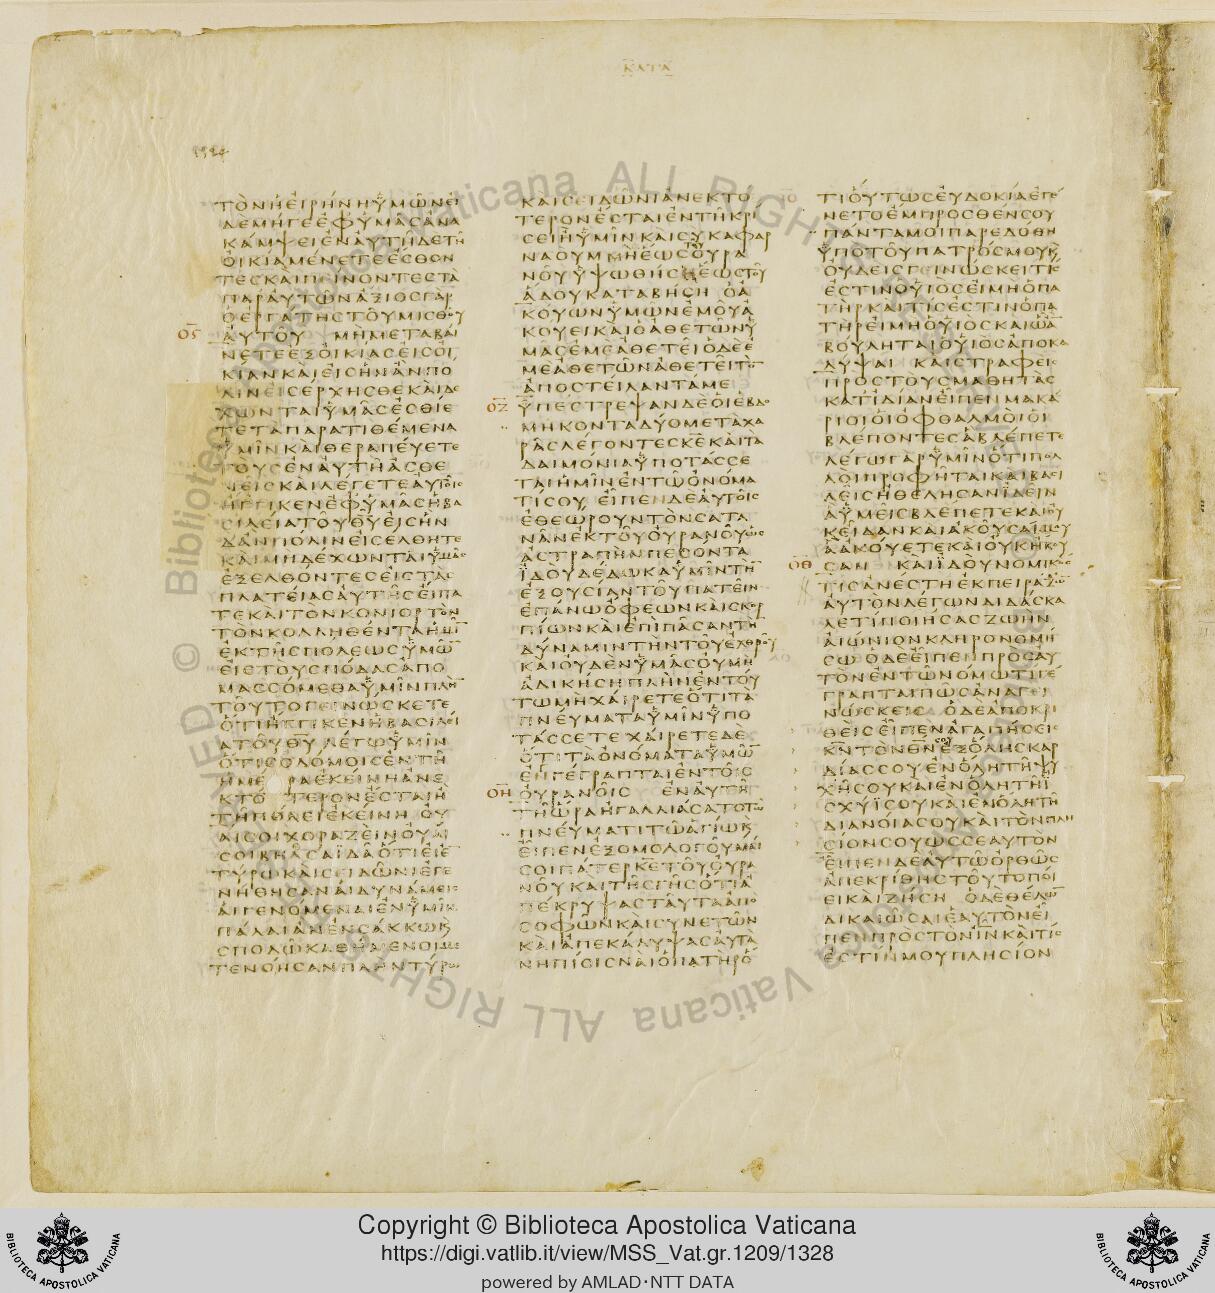 ΚΑΤΑ
1324
ΤΟΝΗΕΙΡΗΝΗΥΜΩΝΕΙ
ΔΕΜΗΓΕΕΦΥΜΑΣΑΝΑ
ΚΑΜΨΕΙΕΝΑΥΤΗΔΕΤΗ
ΟΙΚΙΑΜΕΝΕΤΕΕΣΘΟΝ
ΤΕΣΚΑΙΠΕΙΝΟΝΤΕΣΤΑ
ΠΑΡΑΥΤΩΝΑΞΙΟΣΓΑΡ
ΟΕΡΓΑΤΗΣΤΟΥΜΙΣΘΟΥ
ΟϚ ΑΥΤΟΥ ΜΗΜΕΤΑΒΑΙ
ΝΕΤΕΕΞΟΙΚΙΑΣΕΙΣΟΙ
ΚΙΑΝΚΑΙΕΙΣΗΝΑΝΠΟ
ΛΙΝΕΙΣΕΡΧΗΣΘΕΚΑΙΔΕ
ΧΩΝΤΑΙΥΜΑΣΕΣΘΙΕ
ΤΕΤΑΠΑΡΑΤΙΘΕΜΕΝΑ
ΥΜΙΝΚΑΙΘΕΡΑΠΕΥΕΤΕ
ΤΟΥΣΕΝΑΥΤΗΑΣΘΕ
ΝΕΙΣΚΑΙΛΕΓΕΤΕΑΥΤΟΙΣ
ΗΓΓΙΚΕΝΕΦΥΜΑΣΗΒΑ
ΣΙΛΕΙΑΤΟΥΘΥΕΙΣΗΝ
ΔΑΝΠΟΛΙΝΕΙΣΕΛΘΗΤΕ
ΚΑΙΜΗΔΕΧΩΝΤΑΙΥΜΑΣ
ΕΞΕΛΘΟΝΤΕΣΕΙΣΤΑΣ
ΠΛΑΤΕΙΑΣΑΥΤΗΣΕΙΠΑ
ΤΕΚΑΙΤΟΝΚΟΝΙΟΡΤΟΝ
ΤΟΝΚΟΛΛΗΘΕΝΤΑΗΜΙΝ
ΕΚΤΗΣΠΟΛΕΩΣΥΜΩ
ΕΙΣΤΟΥΣΠΟΔΑΣΑΠΟ
ΜΑΣΣΟΜΕΘΑΥΜΙΝΠΛΗ
ΤΟΥΤΟΓΕΙΝΩΣΚΕΤΕ
ΟΤΙΗΓΓΙΚΕΝΗΒΑΣΙΛΕΙ
ΑΤΟΥΘΥ ΛΕΓΩΥΜΙΝ
ΟΤΙΣΟΔΟΜΟΙΣΕΝΤΗ
ΗΜΕΡΑΕΚΕΙΝΗΑΝΕ
ΚΤΟΤΕΡΟΝΕΣΤΑΙΗ
ΤΗΠΟΛΕΙΕΚΕΙΝΗ ΟΥ
ΑΙΣΟΙΧΟΡΑΖΕΙΝΟΥΑΙ
ΣΟΙΒΗΔΣΑΙΔΑΟΤΙΕΙΕ
ΤΥΡΩΚΑΙΣΕΙΔΩΝΙΕΓΕ
ΝΗΘΗΣΑΝΑΙΔΥΝΑΜΕΙΣ
ΑΙΓΕΝΟΜΕΝΑΙΕΝΥΜΙΝ
ΠΑΛΑΙΑΝΕΝΣΑΚΚΩΚ
ΣΠΟΔΩΚΑΘΗΜΕΝΟΙΜΕ
ΤΕΝΟΗΣΑΝΠΛΗΝΤΥΡΩ
ΚΑΙΣΕΙΔΩΝΙΑΝΕΚΤΟ
ΤΕΡΟΝΕΣΤΑΙΕΝΤΗΚΡΙ
ΣΕΙΗΥΜΙΝΚΑΙΣΥΚΑΦΑΡ
ΝΑΟΥΜΜΗΕΩΣΤΟΥΟΥΡΑ
ΝΟΥΥΨΩΘΗΣΗΕΩΣΤΟΥ
ΑΔΟΥΚΑΤΑΒΗΣΗ ΟΑ
ΚΟΥΩΝΥΜΩΝΕΜΟΥΑ
ΚΟΥΕΙΚΑΙΟΑΘΕΤΩΝΥ
ΜΑΣΕΜΕΑΘΕΤΕΙΟΔΕΕ
ΜΕΑΘΕΤΩΝΑΘΕΤΕΙΤΟ
ΑΠΟΣΤΕΙΛΑΝΤΑΜΕ
ΟΖ ΥΠΕΣΤΡΕΨΑΝΔΕΟΙΕΒΔΟ
ΜΗΚΟΝΤΑΔΥΟΜΕΤΑΧΑ
ΡΑΣΛΕΓΟΝΤΕΣΚΕΚΑΙΤΑ
ΔΑΙΜΟΝΙΑΥΠΟΤΑΣΣΕ
ΤΑΙΗΜΙΝΕΝΤΩΟΝΟΜΑ
ΤΙΣΟΥ ΕΙΠΕΝΔΕΑΥΤΟΙΣ
ΕΘΕΩΡΟΥΝΤΟΝΣΑΤΑ
ΝΑΝΕΚΤΟΥΟΥΡΑΝΟΥΩΣ
ΑΣΤΡΑΠΗΝΠΕΣΟΝΤΑ
ΙΔΟΥΔΕΔΩΚΑΥΜΙΝΤΗ
ΕΞΟΥΣΙΑΝΤΟΥΠΑΤΕΙΝ
ΕΠΑΝΩΟΦΕΩΝΚΑΙΣΚΟΡ
ΠΙΩΝΚΑΙΕΠΙΠΑΣΑΝΤΗ
ΔΥΝΑΜΙΝΤΗΝΤΟΥΕΧΘΡΟΥ
ΚΑΙΟΥΔΕΝΥΜΑΣΟΥΜΗ
ΑΔΙΚΗΣΗΠΛΗΝΕΝΤΟΥ
ΤΩΜΗΧΑΙΡΕΤΕΟΤΙΤΑ
ΠΝΕΥΜΑΤΑΥΜΙΝΥΠΟ
ΤΑΣΣΕΤΕΧΑΙΡΕΤΕΔΕ
ΟΤΙΤΑΟΝΟΜΑΤΑΥΜΩ
ΕΝΓΕΓΡΑΠΤΑΙΕΝΤΟΙΣ
ΟΗ ΟΥΡΑΝΟΙΣ ΕΝΑΥΤΗ
ΤΗΩΡΑΗΓΑΛΛΙΑΣΑΤΟΤΩ
ΠΝΕΥΜΑΤΙΤΩΑΓΙΩΚ
ΕΙΠΕΝΕΞΟΜΟΛΟΓΟΥΜΑΙ
ΣΟΙΠΑΤΕΡΚΕΤΟΥΟΥΡΑ
ΝΟΥΚΑΙΤΗΣΓΗΣΟΤΙΑ
ΠΕΚΡΥΨΑΣΤΑΥΤΑΑΠΟ
ΣΟΦΩΝΚΑΙΣΥΝΕΤΩΝ
ΚΑΙΑΠΕΚΑΛΥΨΑΣΑΥΤΑ
ΝΗΠΙΟΙΣΝΑΙΟΠΑΤΗΡΟ
ΤΙΟΥΤΩΣΕΥΔΟΚΙΑΕΓΕ
ΝΕΤΟΕΜΠΡΟΣΘΕΝΣΟΥ
ΠΑΝΤΑΜΟΙΠΑΡΕΔΟΘΗ
ΥΠΟΤΟΥΠΑΤΡΟΣΜΟΥΚ
ΟΥΔΕΙΣΓΕΙΝΩΣΚΕΙΤΙΣ
ΕΣΤΙΝΟΥΙΟΣΕΙΜΗΟΠΑ
ΤΗΡΚΑΙΤΙΣΕΣΤΙΝΟΠΑ
ΤΗΡΕΙΜΗΟΥΙΟΣΚΑΙΩΑ
ΒΟΥΛΗΤΑΙΟΥΙΟΣΑΠΟΚΑ
ΛΥΨΑΙ ΚΑΙΣΤΡΑΦΕΙΣ
ΠΡΟΣΤΟΥΣΜΑΘΗΤΑΣ
ΚΑΤΙΔΙΑΝΕΙΠΕΝΜΑΚΑ
ΡΙΟΙΟΙΟΦΘΑΛΜΟΙΟΙ
ΒΛΕΠΟΝΤΕΣΑΒΛΕΠΕΤΕ
ΛΕΓΩΓΑΡΥΜΙΝΟΤΙΠΟΛ
ΛΟΙΠΡΟΦΗΤΑΙΚΑΙΒΑΣΙ
ΛΕΙΣΗΘΕΛΗΣΑΝΙΔΕΙΝ
ΑΥΜΕΙΣΒΛΕΠΕΤΕΚΑΙΟΥ
ΚΕΙΔΑΝΚΑΙΑΚΟΥΣΑΙΜΟΥ
ΑΑΚΟΥΕΤΕΚΑΙΟΥΚΗΚΟΥ
ΟΘ ΣΑΝ ΚΑΙΙΔΟΥΝΟΜΙΚΟΣ
ΤΙΣΑΝΕΣΤΗΕΚΠΕΙΡΑΖΩ
ΑΥΤΟΝΛΕΓΩΝΔΙΔΑΣΚΑ
ΛΕΤΙΠΟΙΗΣΑΣΖΩΗΝ
ΑΙΩΝΙΟΝΚΛΗΡΟΝΟΜΗ
ΣΩ ΟΔΕΕΙΠΕΝΠΡΟΣΑΥ
ΤΟΝΕΝΤΩΝΟΜΩΤΙΓΕ
ΓΡΑΠΤΑΙΠΩΣΑΝΑΓΕΙ
ΝΩΣΚΕΙΣ ΟΔΕΑΠΟΚΡΙ
ΘΕΙΣΕΙΠΕΝΑΓΑΠΗΣΕΙΣ
ΚΝΤΟΝΘΝΣΟΥΕΞΟΛΗΣΚΑΡ
ΔΙΑΣΣΟΥΕΝΟΛΗΤΗΨΥ
ΧΗΣΟΥΚΑΙΕΝΟΛΗΤΗΙ
ΣΧΥΙΣΟΥΚΑΙΕΝΟΛΗΤΗ
ΔΙΑΝΟΙΑΣΟΥΚΑΙΤΟΝΠΛΗ
ΣΙΟΝΣΟΥΩΣΣΕΑΥΤΟΝ
ΕΙΠΕΝΔΕΑΥΤΩΟΡΘΩΣ
ΑΠΕΚΡΙΘΗΣΤΟΥΤΟΠΟΙ
ΕΙΚΑΙΖΗΣΗ ΟΔΕΘΕΛΩ
ΔΙΚΑΙΩΣΑΙΕΑΥΤΟΝΕΙ
ΠΕΝΠΡΟΣΤΟΝΙΝΚΑΙΤΙΣ
ΕΣΤΙΝΜΟΥΠΛΗΣΙΟΝ
© Biblioteca Apostolica Vaticana ALL RIGHTS RESERVED
Copyright © Biblioteca Apostolica Vaticana
https://digi.vatlib.it/view/MSS_Vat.gr.1209/1328
powered by AMLAD·NTT DATA
BIBLIOTECA APOSTOLICA VATICANA
BIBLIOTECA APOSTOLICA VATICANA